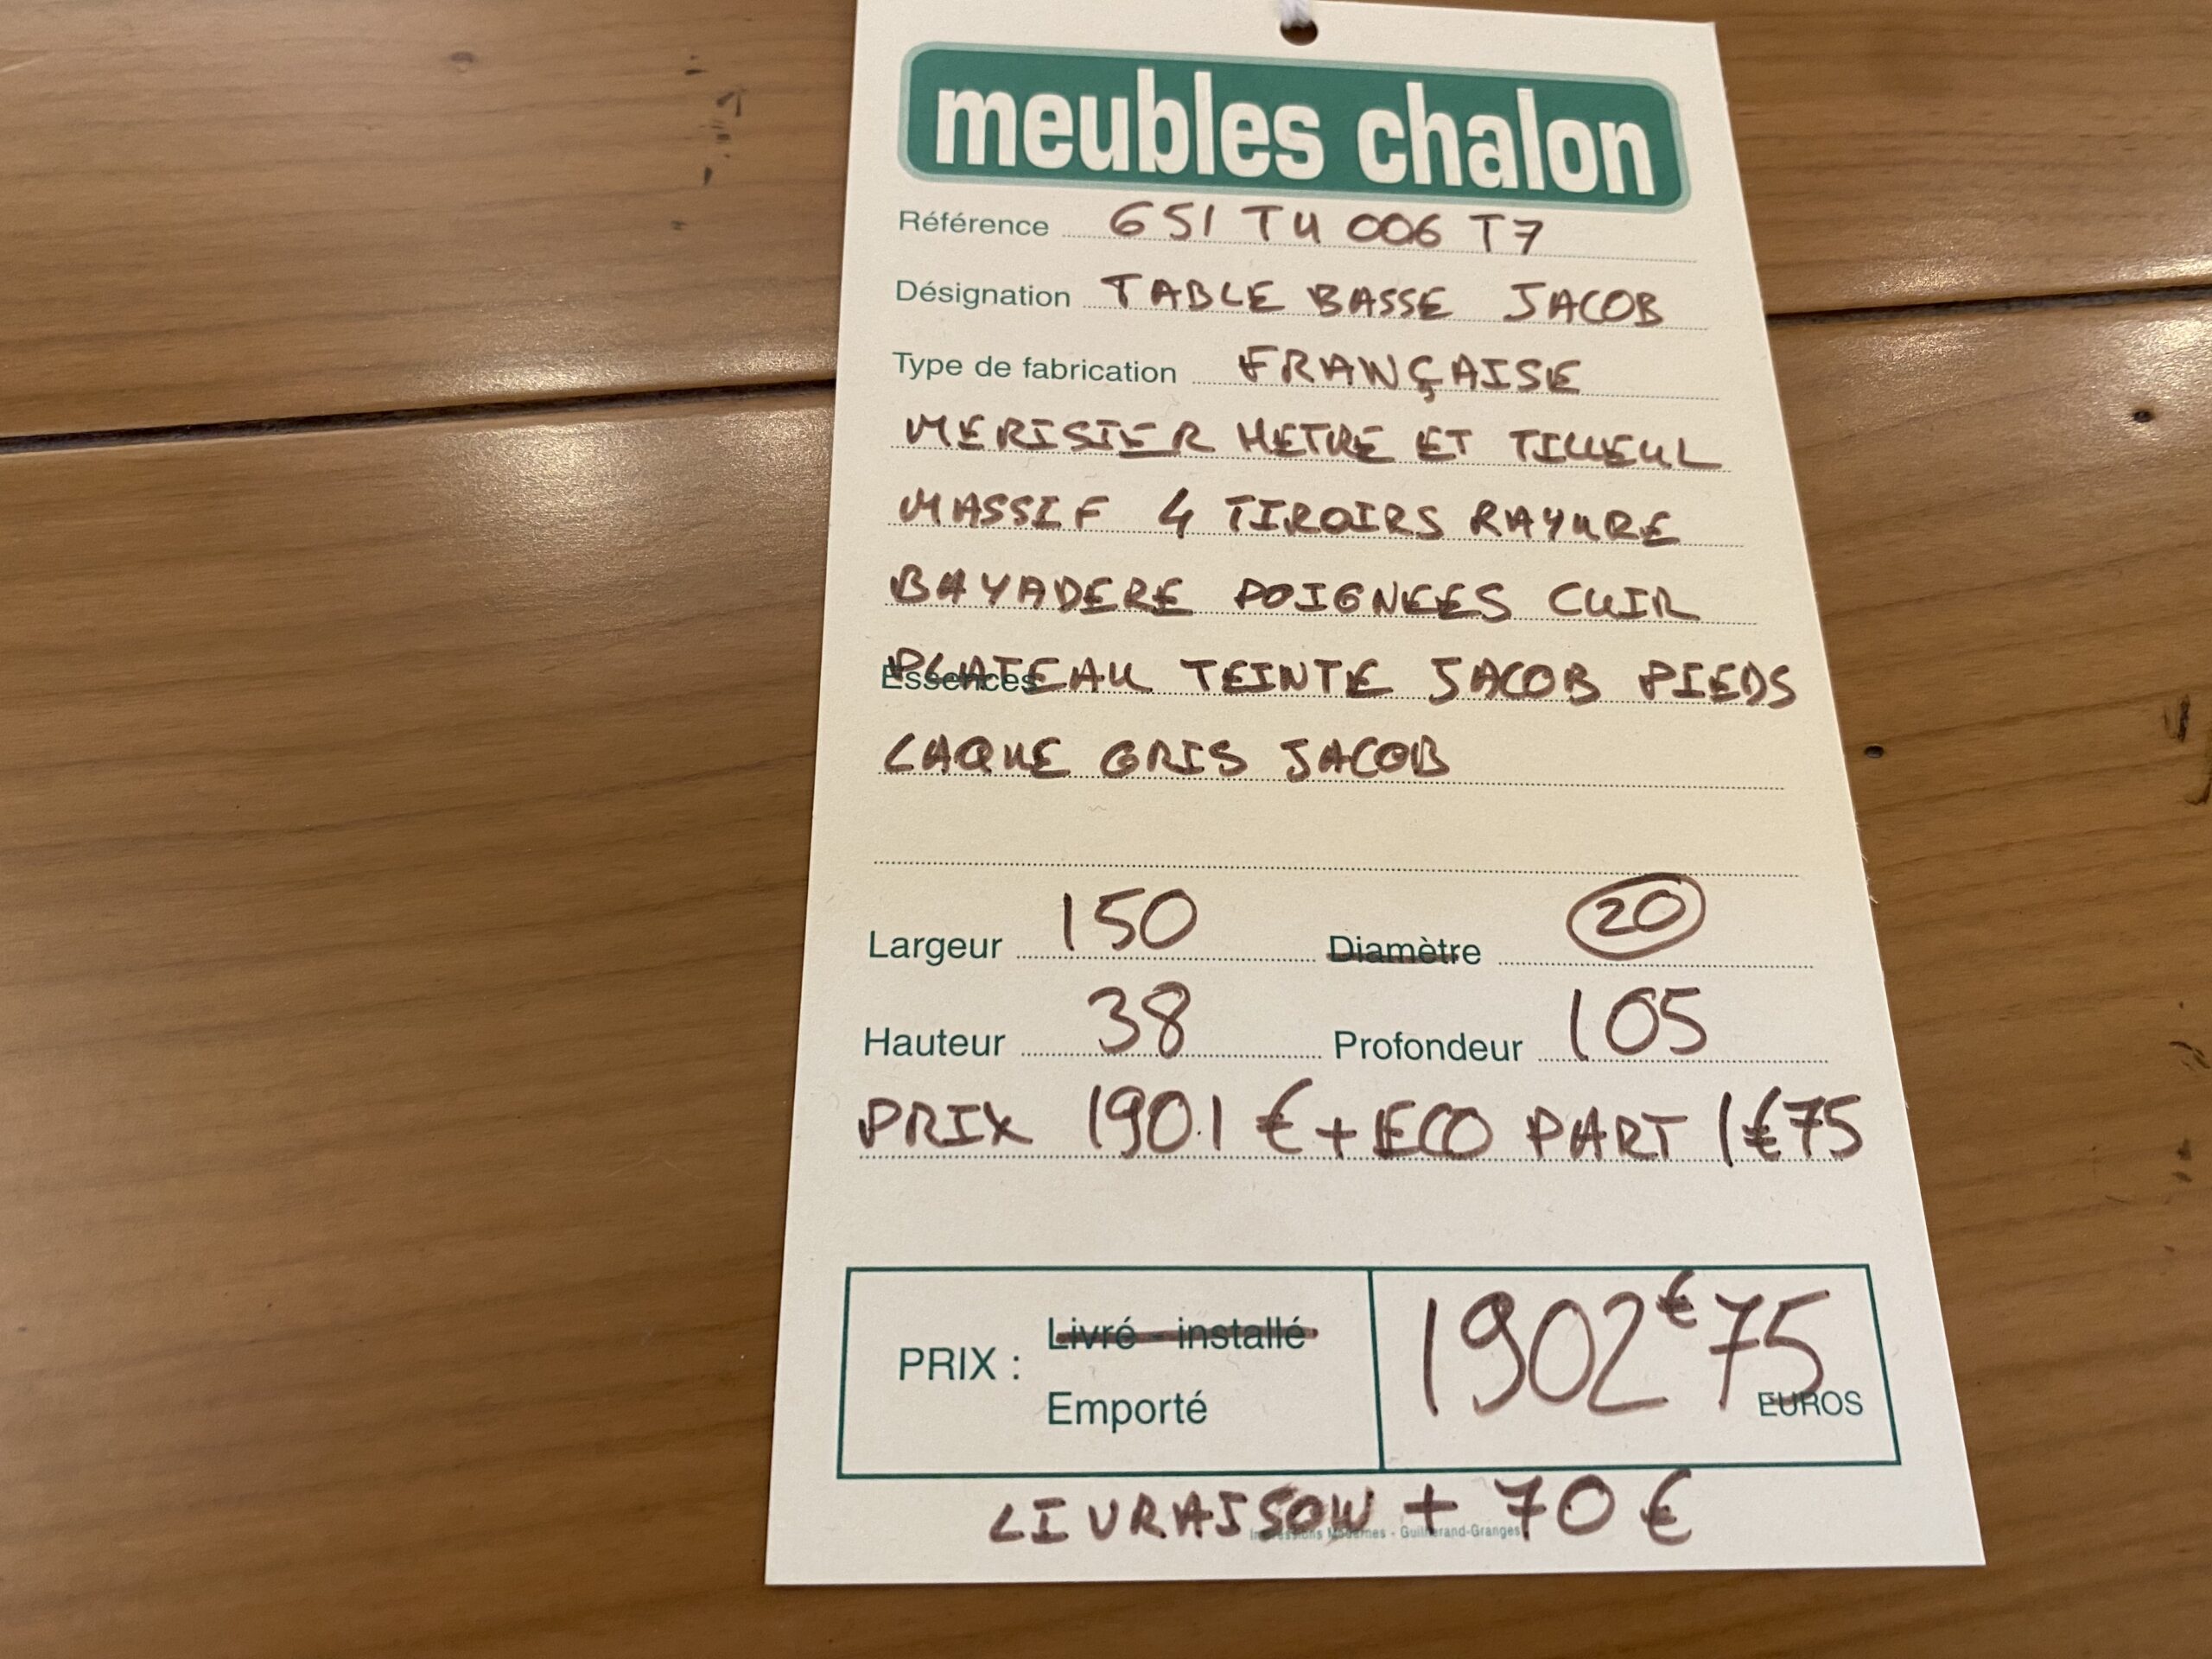 meubles chalon
Référence 651 TU 006 T7
Désignation TABLE BASSE JACOB
Type de fabrication FRANÇAISE
MERISIER HETRE ET TILLEUL
MASSIF 4 TIROIRS RAYURE
BAYADERE POIGNEES CUIR
Essences PLATEAU TEINTE JACOB PIEDS
LAQUE GRIS JACOB
Largeur 150 Diamètre 20
Hauteur 38 Profondeur 105
PRIX 1901 € + ECO PART 1€75
PRIX : Livré - installé
Emporté
1902€75
EUROS
LIVRAISON + 70 €
Impressions Modernes - Guilherand-Granges